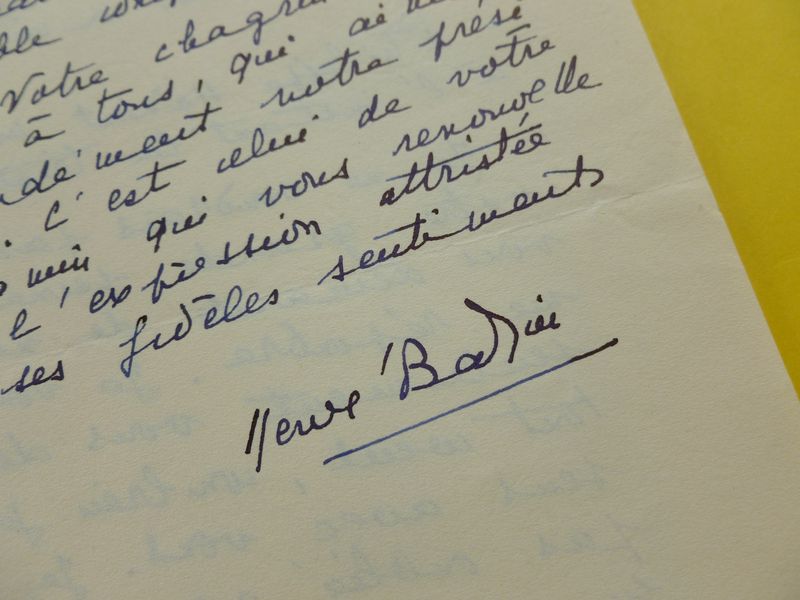 Votre chagrin
à tous, qui aim
dément notre prési
c'est celui de votre
min qui vous renouvelle
l'expression attristée
ses fidèles sentiments
Hervé Bazin